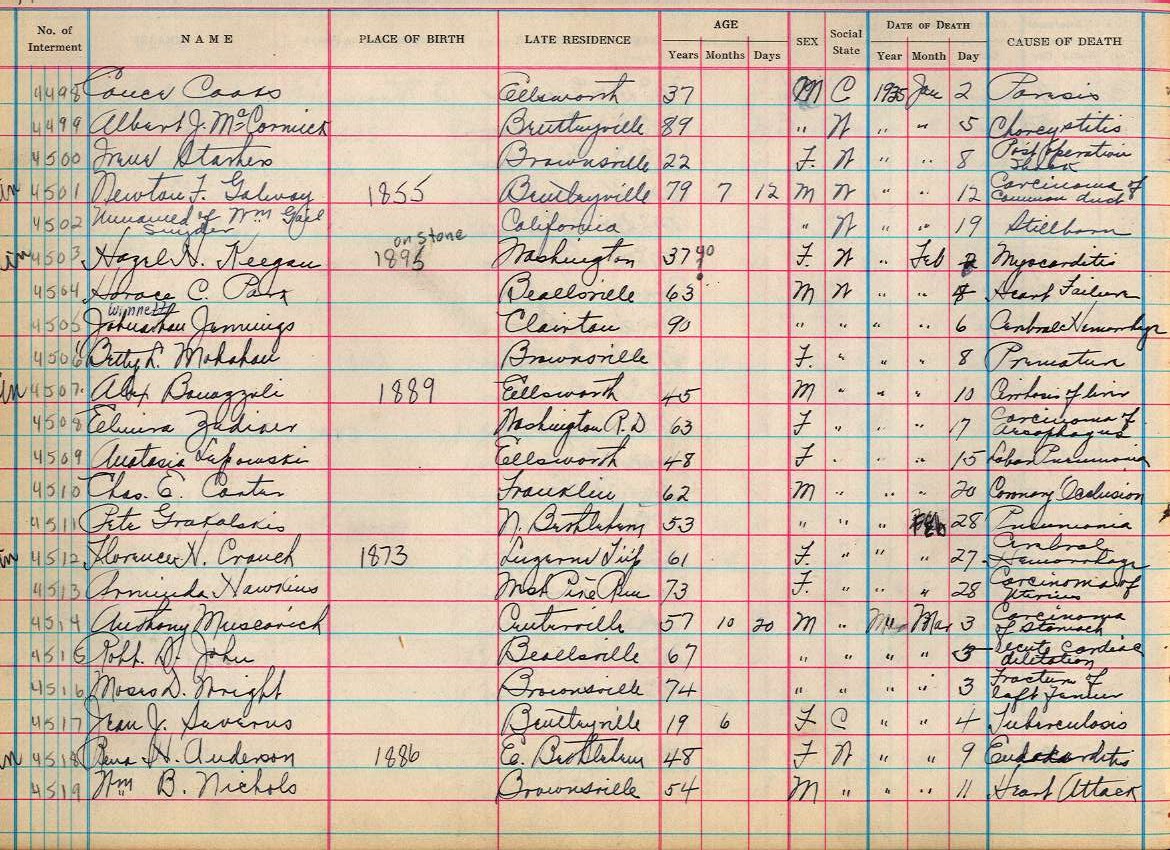 No. of Interment NAME PLACE OF BIRTH LATE RESIDENCE AGE Years Months Days SEX Social State DATE OF DEATH Year Month Day CAUSE OF DEATH
4498 Ellsworth 37 M C 1935 Jan 2 Paresis
4499 Albert J. McCormick Bentleyville 89 " W " " 5
4500 Brownsville 22 F. W " " 8 Post operation Shock
in 4501 Newton F. Galway 1855 Bentleyville 79 7 12 M W " " 12 Carcinoma of Common duct
4502 Unnamed of Wm Gail Snyder California " W " " 19 Stillborn
in 4503 Hazel H. Keegan 1895 on stone Washington 37 40 ? F. W " Feb 2 Myocarditis
4504 Horace C. Park Beallsville 63 M W " " Heart Failure
4505 Johnathan Winnett Jennings Clairton 90 " " " " 6 Cerebral Hemorrhage
4506 Betty L. Brownsville F. " " " 8 Premature
in 4507 Alex 1889 Ellsworth 45 M " " " 10 Cirrhosis of liver
4508 Elmira Washington R.D 63 F " " " 17 Carcinoma of Aesophagus
4509 Anatasia Ellsworth 48 F " " " 15 Lobar Pneumonia
4510 Chas. E. Carter Franklin 62 M " " " 20 Coronary Occlusion
4511 Pete N. Bethlehem 53 " " " Feb 28 Pneumonia
in 4512 Florence N. Crouch 1873 Luzerne Twp 61 F. " " " 27 Cerebral Hemorrhage
4513 Arminda Hawkins West Pike Run 73 F. " " " 28 Carcinoma of Uterus
4514 Anthony Muscovich Centerville 57 10 20 M " " Mar 3 Carcinoma of Stomach
4515 Robt. D. John Beallsville 67 " " " " 3 Acute Cardiac dilitation
4516 Moses D. Wright Brownsville 74 " " " " 3 Fracture of left Femur
4517 Jean J. Severns Bentleyville 19 6 F C " " 4 Tuberculosis
in 4518 Rena H. Anderson 1886 E. Bethlehem 48 F W " " 9 Endocarditis
4519 Wm B. Nichols Brownsville 54 M " " " 11 Heart Attack